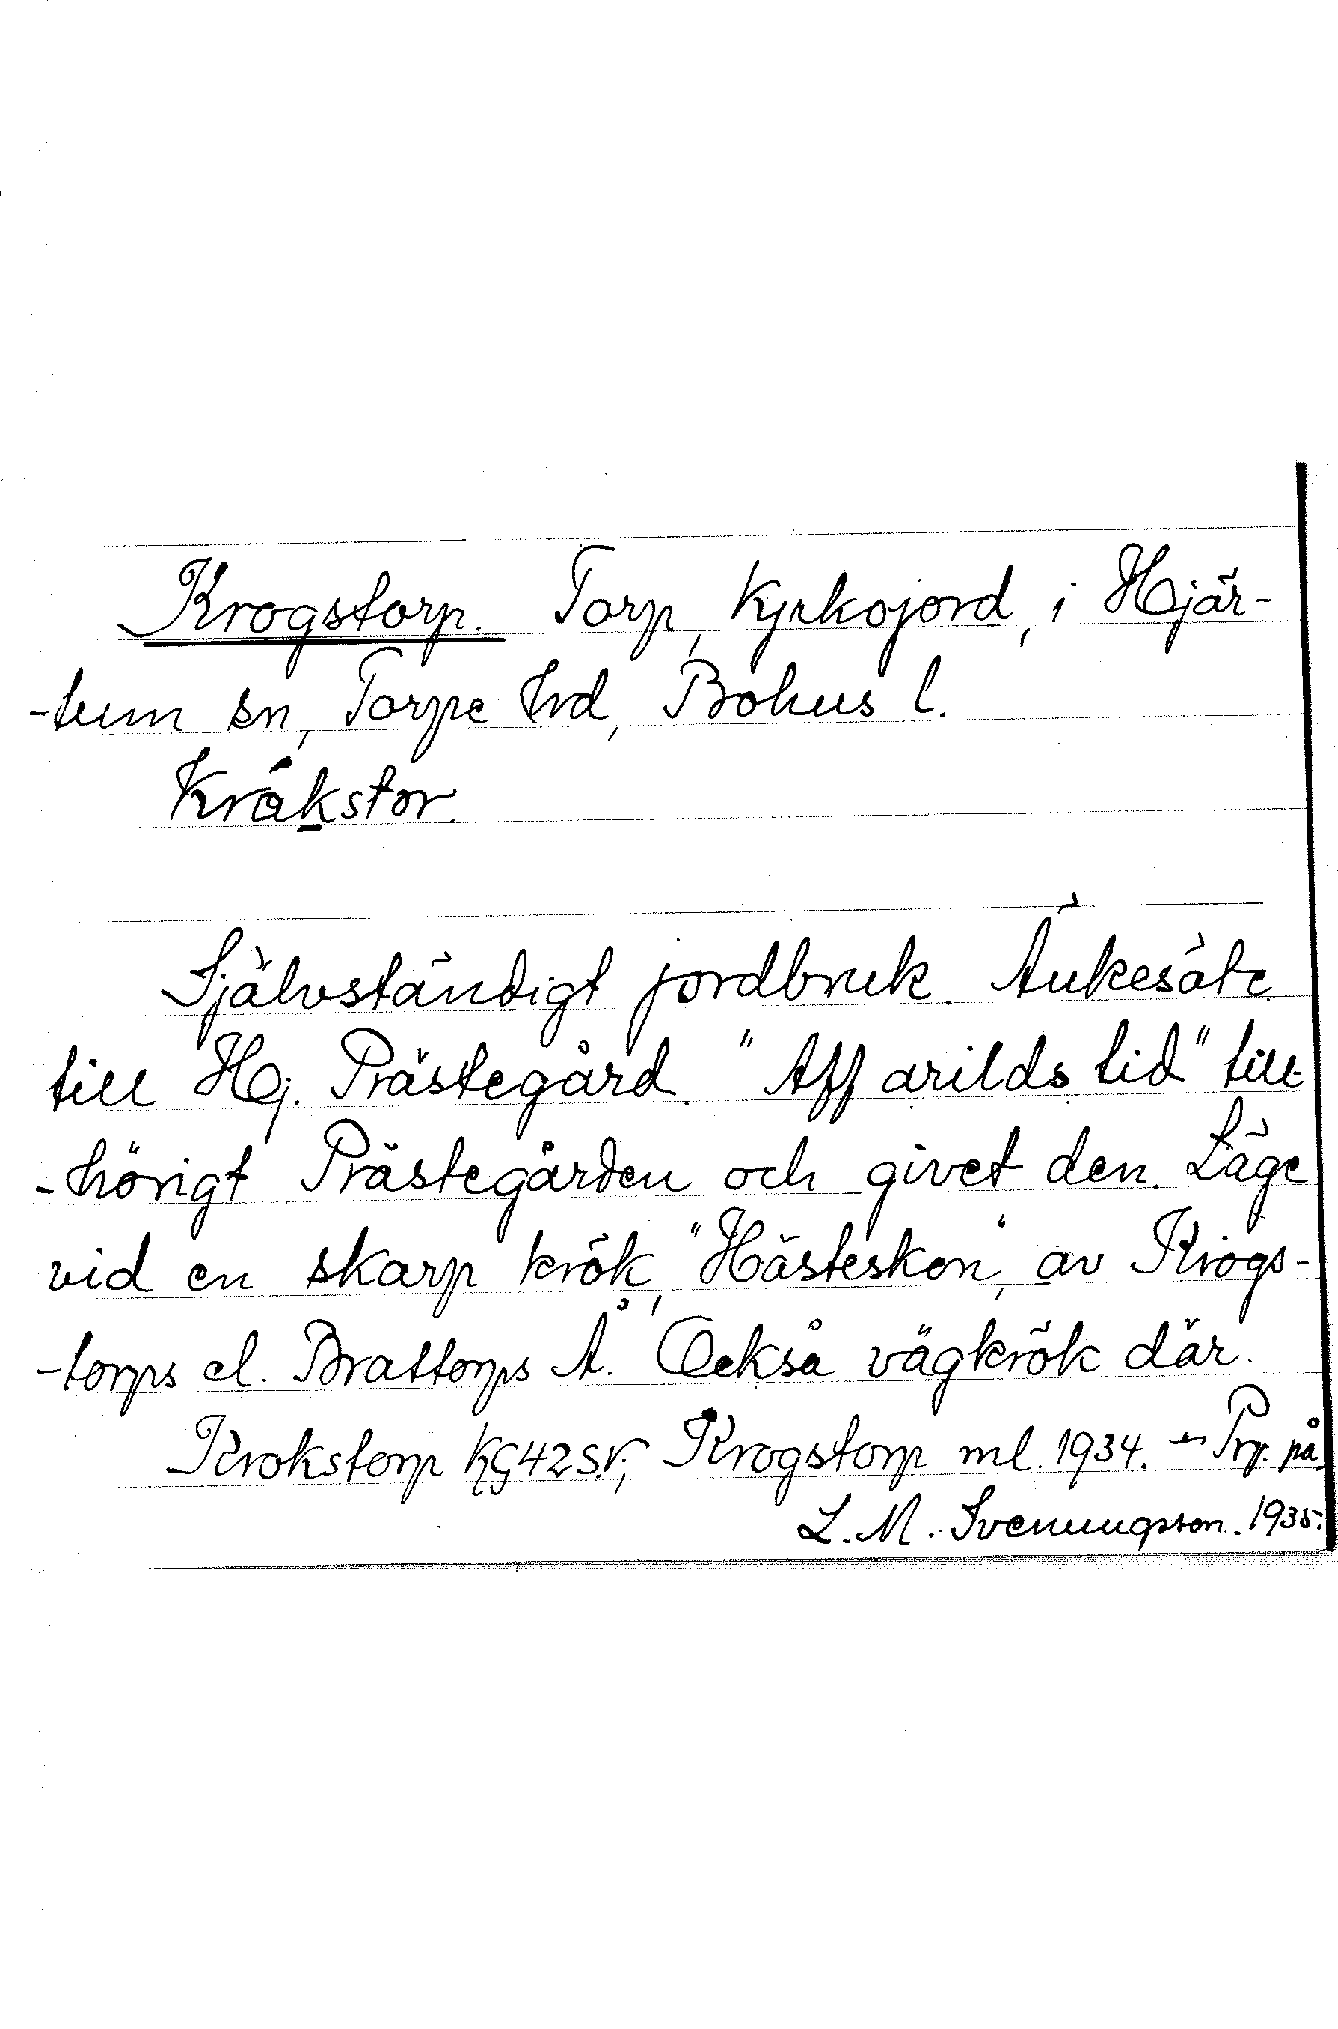 Krogstorp. Torp, Kyrkojord, i Hjär-
-tum sn, Torpe hd, Bohus l.
Kråkstor.
Självständigt jordbruk. Änkesäte
till Hj. Prästegård. "Aff arilds tid" till-
-hörigt Prästegården och givet den. Läge
vid en skarp krök, "Hästeskon", av Krogs-
-torps el. Brattorps Å. Också vägkrök där.
Krokstorp KG42SV; Krogstorp ml. 1934. — Prp. på
L. M. Svenungsson. 1935.